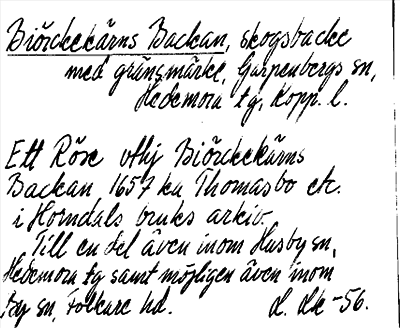 Biörckekärns Backan, skogsbacke
med gränsmärke, Garpenbergs sn,
Hedemora tg, Kopp. l.
Ett Röse vthj Biörckekärns
Backan 1657 ka Thomasbo etc.
i Horndals bruks arkiv.
Till en del även inom Husby sn,
Hedemora tg samt möjligen även inom
By sn, Folkare hd. L. Lk -56.